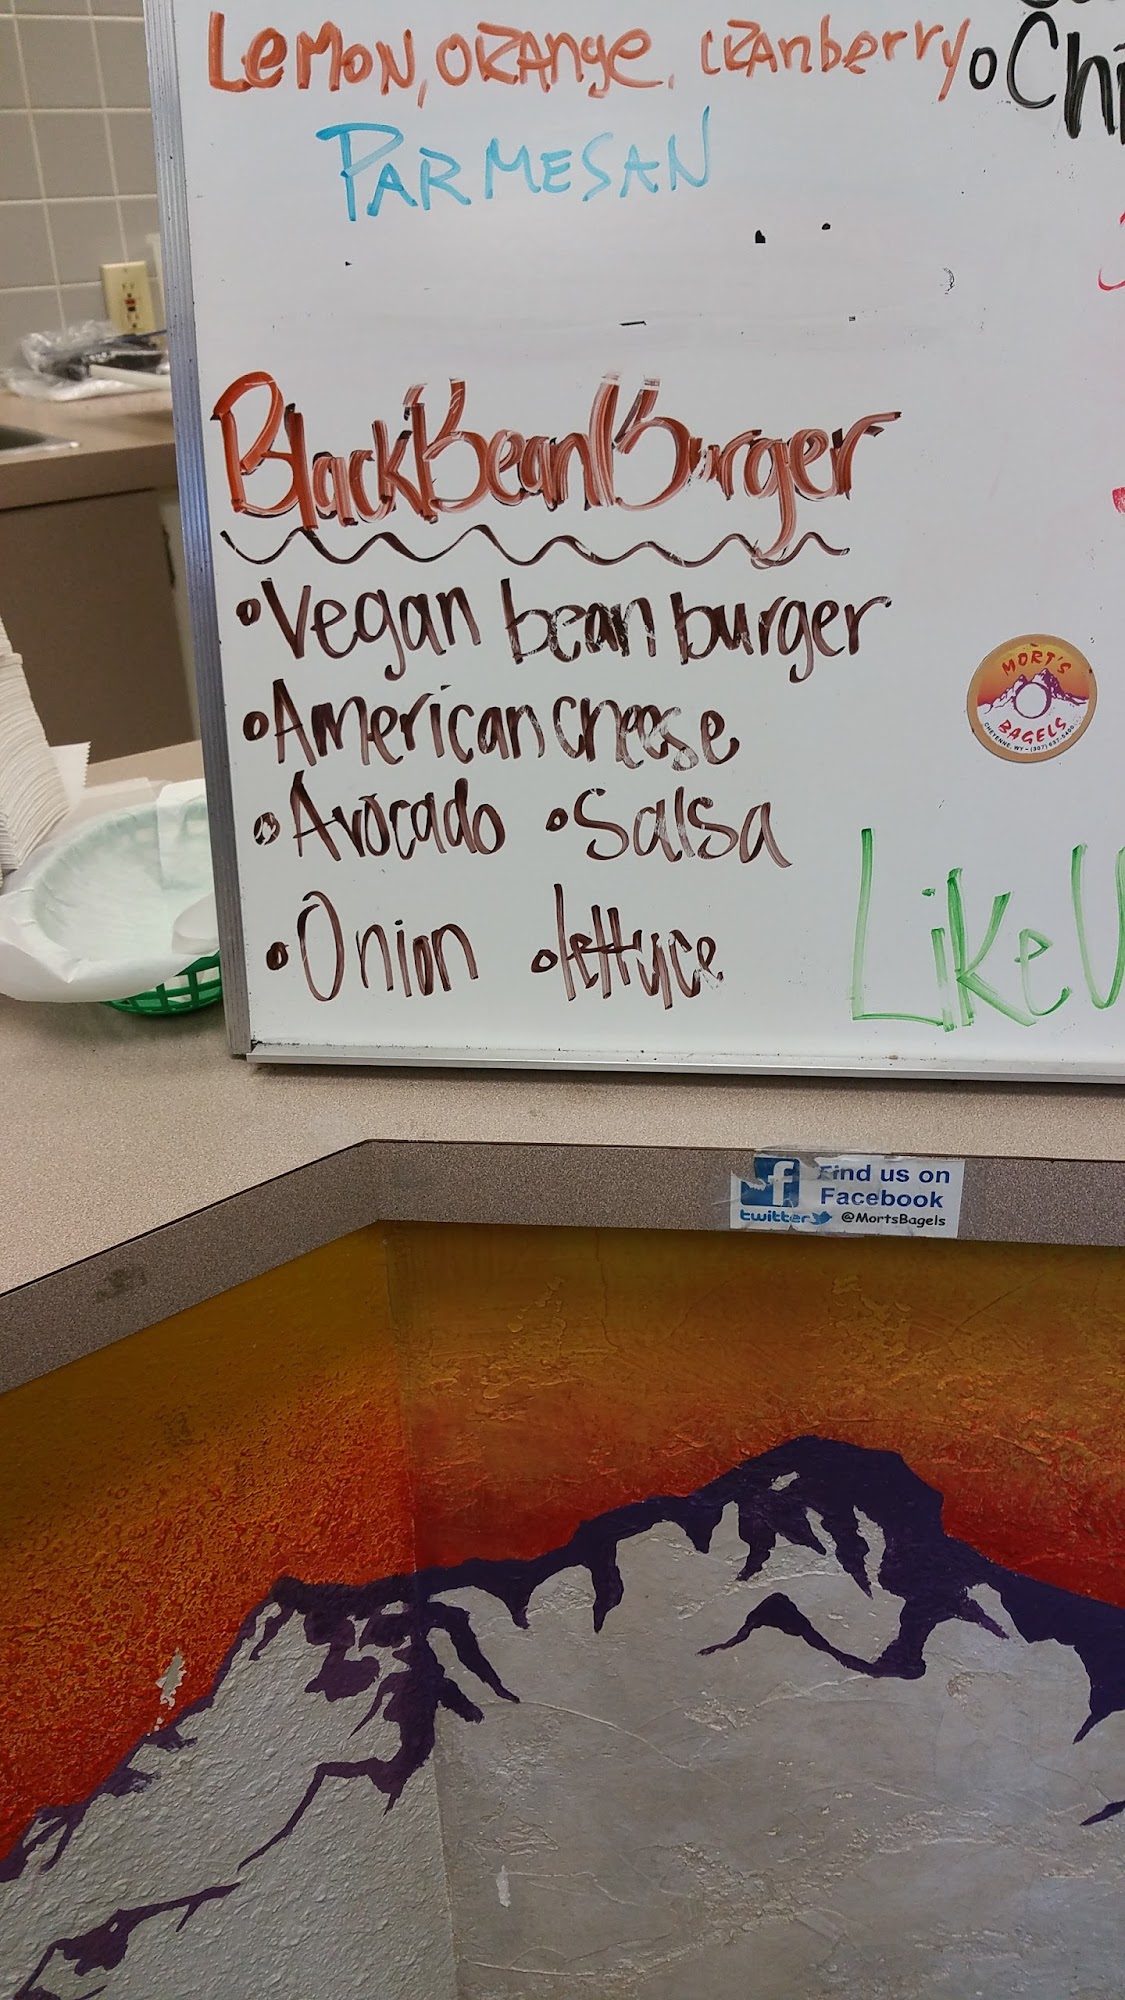 LEMON, ORANGE, CRANberry
PARMESAN
Black Bean Burger
•Vegan bean burger
•American cheese
•Avocado •Salsa
•Onion •lettuce
Like
MORT'S
BAGELS
CHEYENNE, WY - (307) 637-5400
f Find us on
Facebook
twitter @MortsBagels